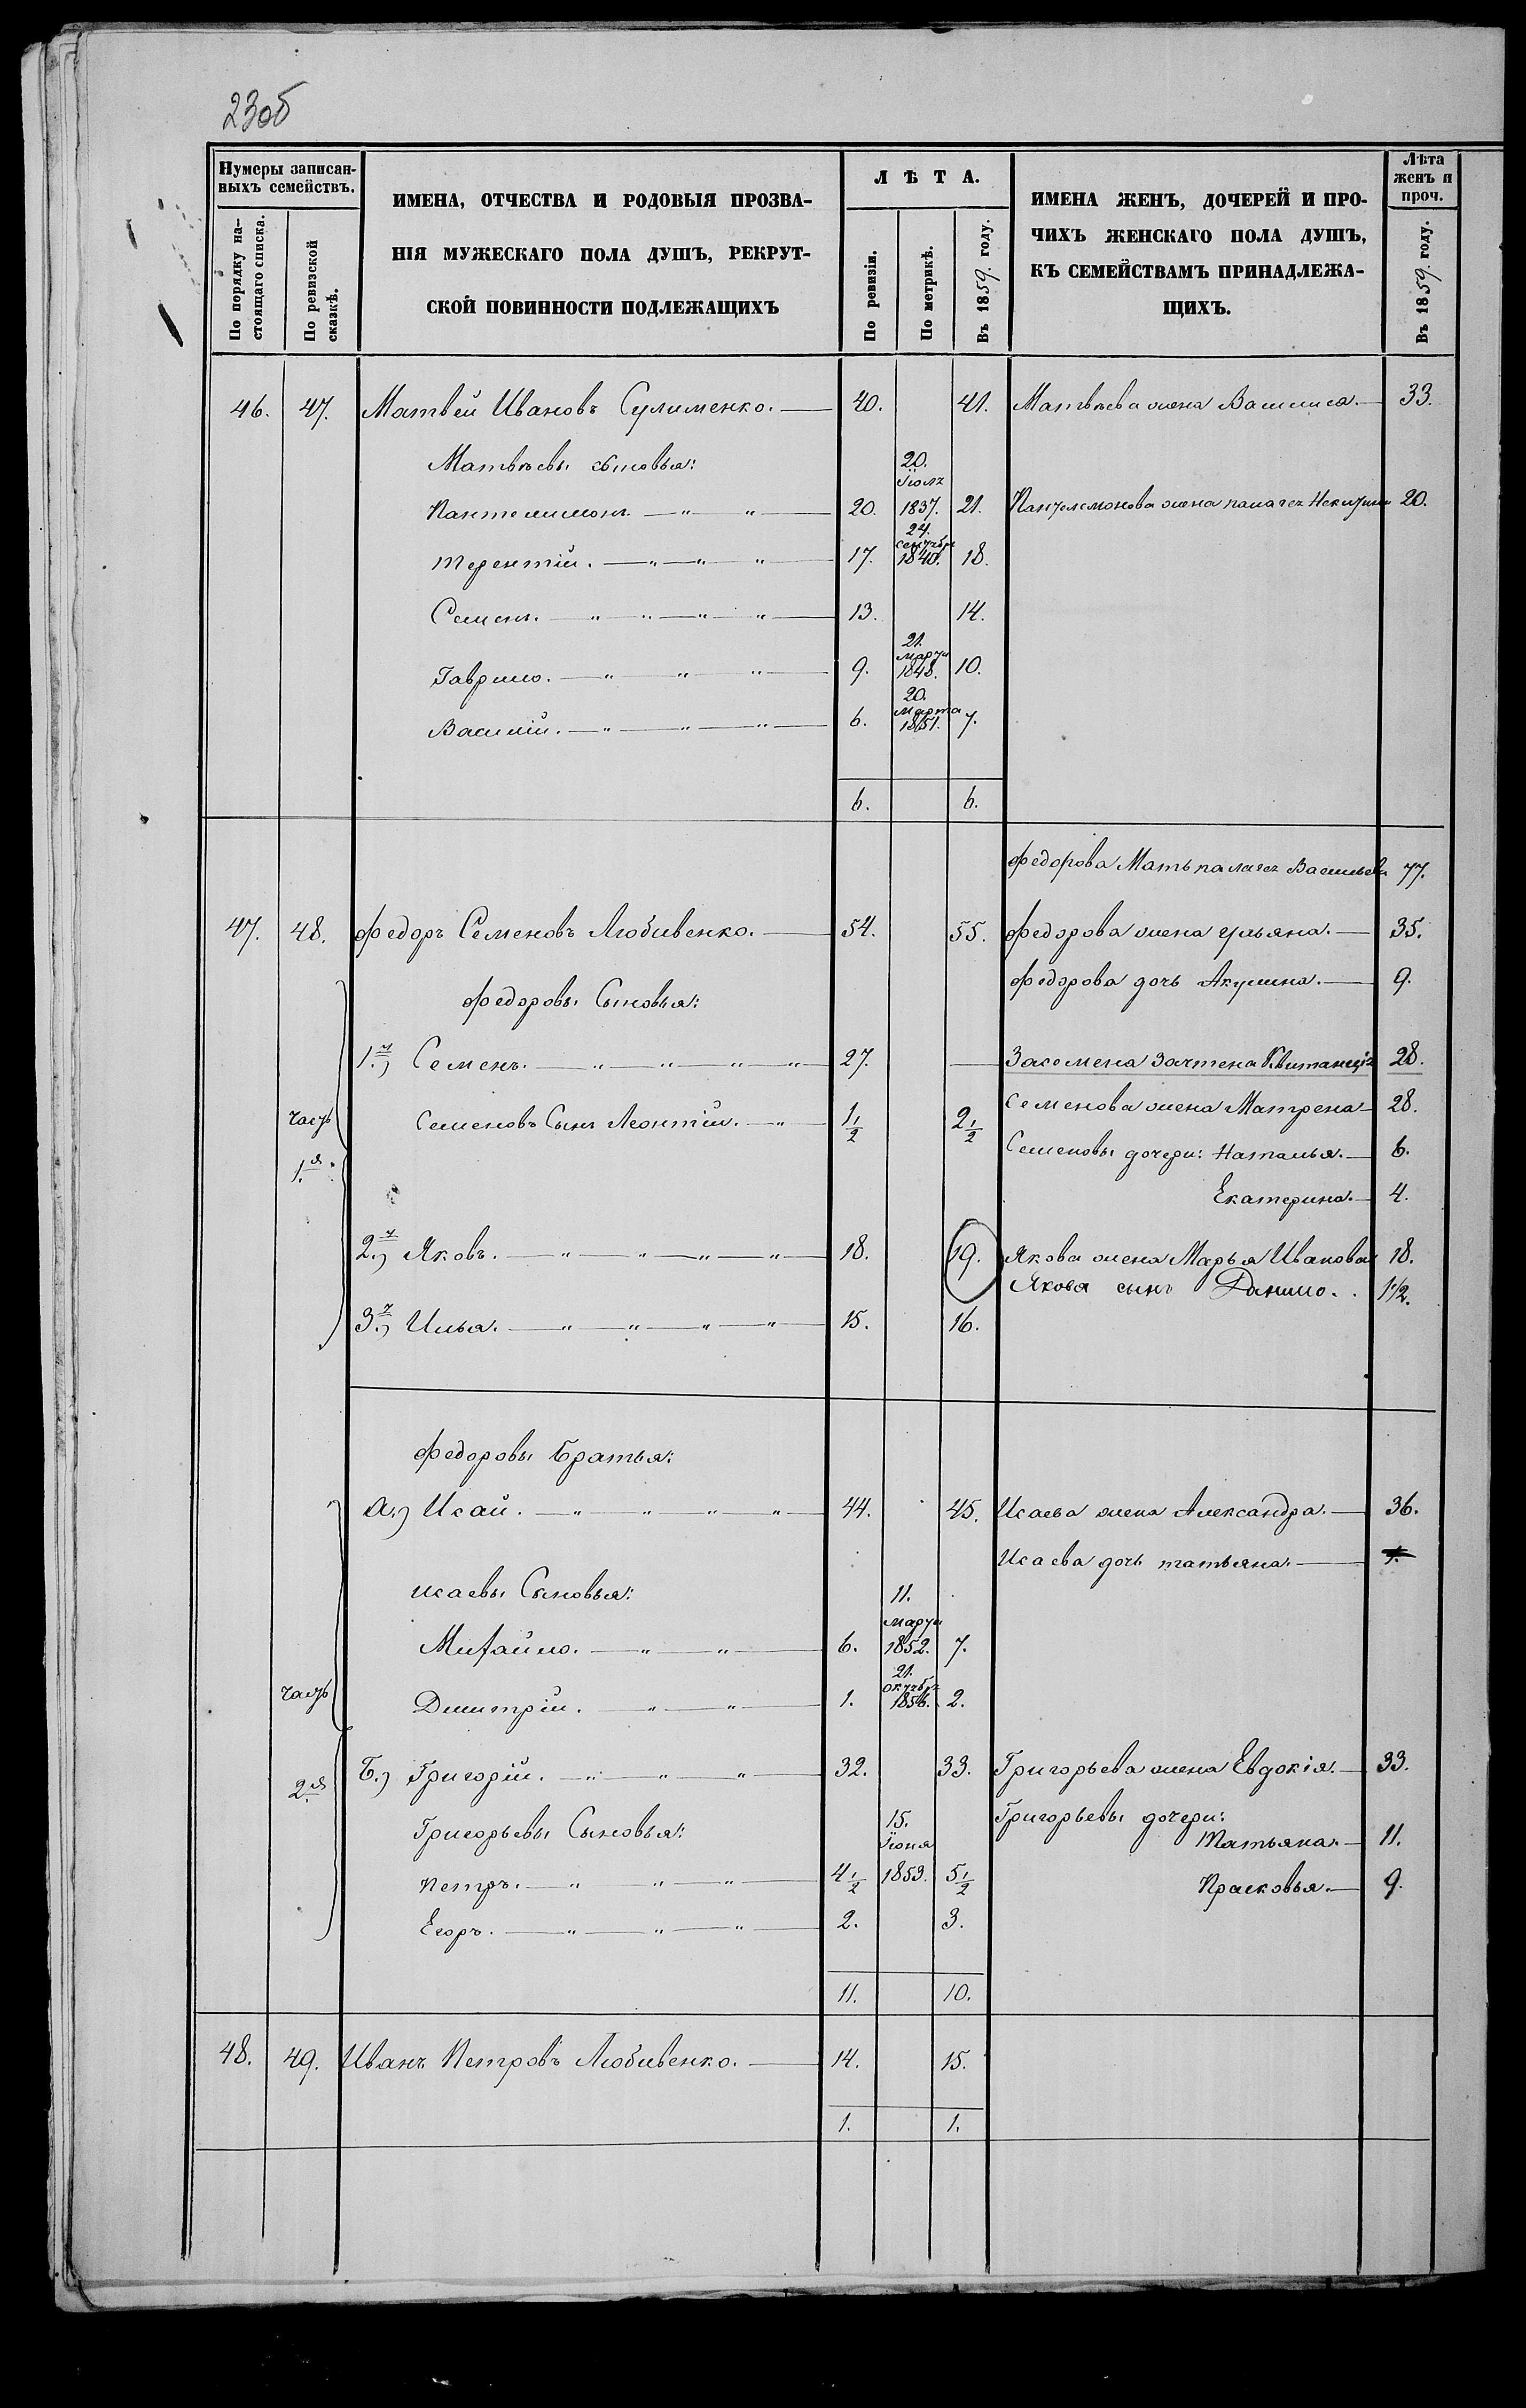 23об
Нумеры записан-
ныхъ семействъ.
По порядку на-
стоящаго списка.
По ревизской
сказкѣ.
ИМЕНА, ОТЧЕСТВА И РОДОВЫЯ ПРОЗВА-
НІЯ МУЖЕСКАГО ПОЛА ДУШЪ, РЕКРУТ-
СКОЙ ПОВИННОСТИ ПОДЛЕЖАЩИХЪ
ЛѢТА.
По ревизіи.
По метрикѣ.
Въ 1859. году.
ИМЕНА ЖЕНЪ, ДОЧЕРЕЙ И ПРО-
ЧИХЪ ЖЕНСКАГО ПОЛА ДУШЪ,
КЪ СЕМЕЙСТВАМЪ ПРИНАДЛЕЖА-
ЩИХЪ.
Лѣта
женъ и
проч.
Въ 1859. году.
46. 47. Матвей Ивановъ Сулименко. 40. 41. Матвѣева жена Василиса. 33.
Матвѣевы сыновья: 20.
Іюля
Пантелимонъ 20. 1837. 21. Пантелемонова жена Палагея 20.
24.
Сентября
Терентій. 17. 1840. 18.
Семенъ. 13. 14.
21.
Марта
Гаврило. 9. 1848. 10.
20.
Марта
Василій. 6. 1851. 7.
6. 6.
Федорова Мать Палагея Васильева 77.
47. 48. Федоръ Семеновъ Любивенко. 54. 55. Федорова жена Ульяна. 35.
Федорова дочь Акулина. 9.
Федоровы Сыновья:
1.й) Семенъ. 27. За Семена зачтена Квитанція 28.
Часть Семеновъ Сынъ Леонтій. 1 1/2 2 1/2 Семенова жена Матрена 28.
1.я Семеновы дочери: Наталья. 6.
Екатерина. 4.
2.й) Яковъ. 18. 19. Якова жена Марья Иванова 18.
Якова сынъ Данило. 1 1/2.
3.й) Илья. 15. 16.
Федоровы Братья:
а.) Исай. 44. 45. Исаева жена Александра. 36.
Исаева дочь Татьяна.
Исаевы Сыновья: 11.
Марта
Михайло. 6. 1852. 7.
21.
Октября
Часть Дмитрій. 1. 1856. 2.
2.я Б.) Григорій. 32. 33. Григорьева жена Евдокія. 33.
Григорьевы Сыновья: 15. Григорьевы дочери:
Іюня Татьяна. 11.
Петръ. 4 1/2 1853. 5 1/2 Прасковья. 9.
Егоръ. 2. 3.
11. 10.
48. 49. Иванъ Петровъ Любивенко. 14. 15.
1. 1.